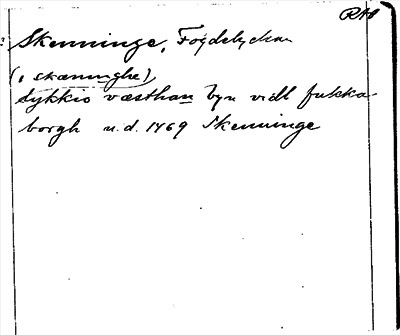 RAÄ
Skenninge, Fogdelyckan
(i skæninghe)
lykkio væsthan byn vidh fukka-
borgh u.d. 1469 Skenninge